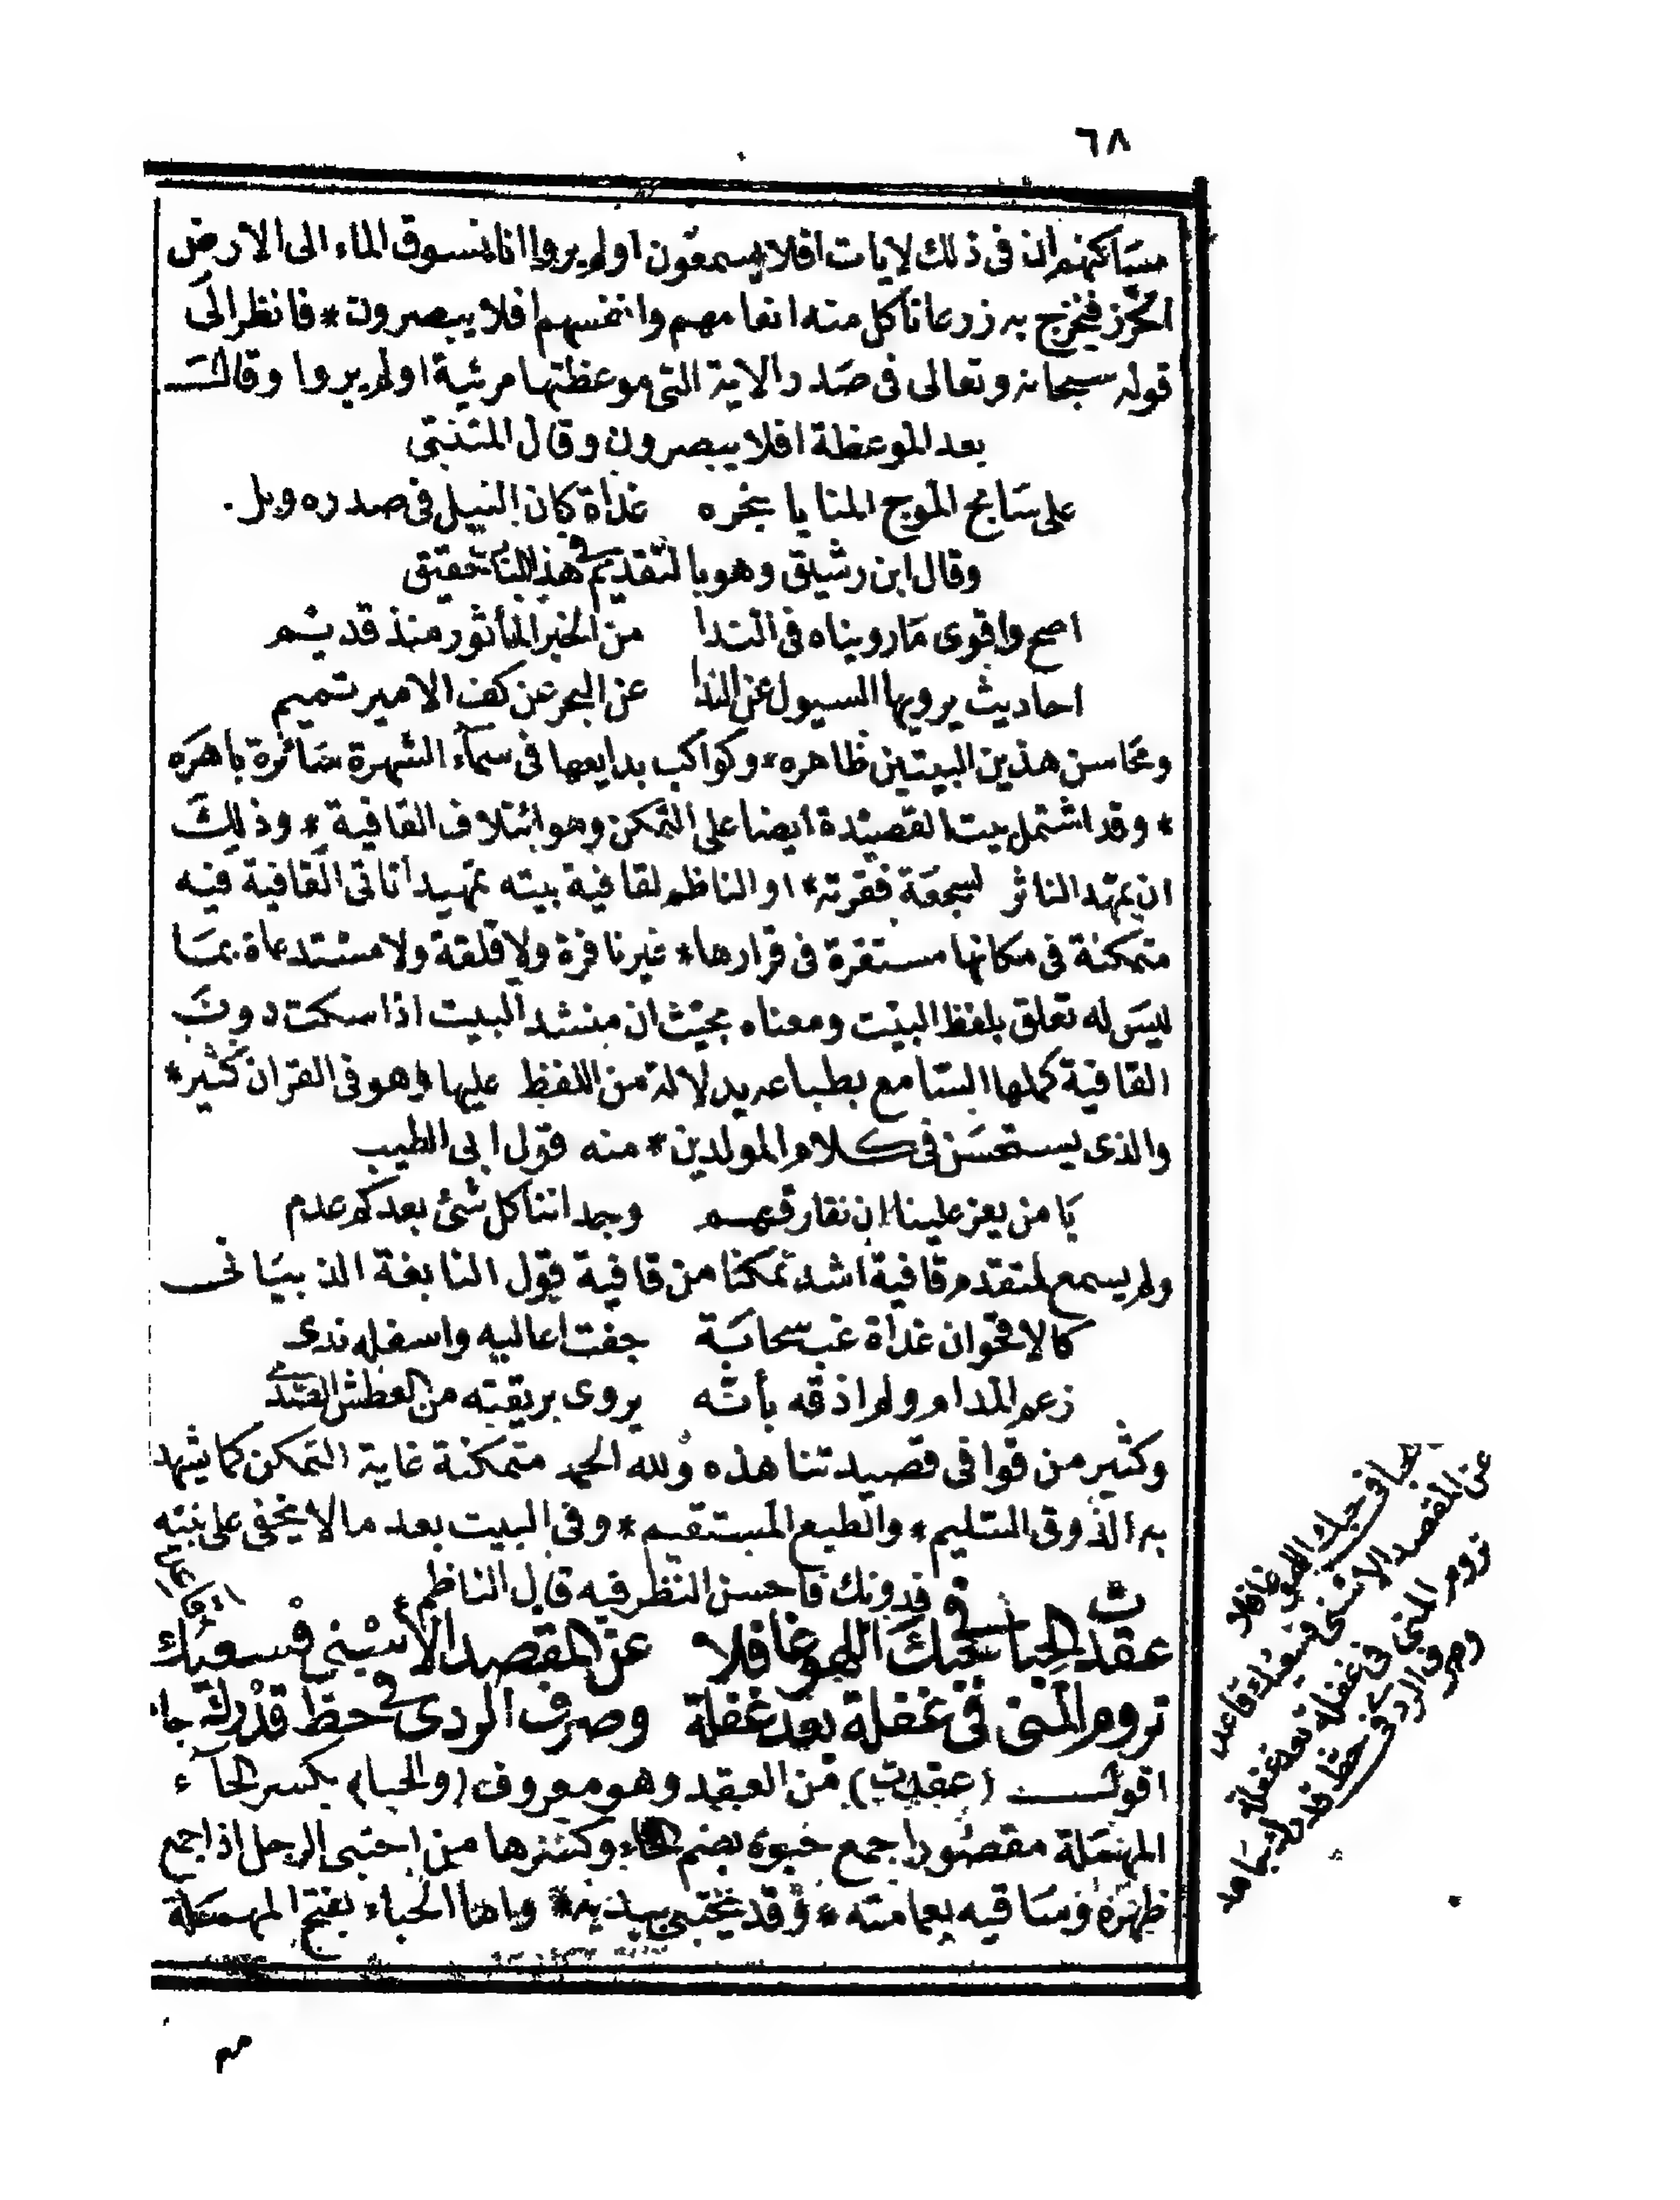 ٦٨
مساكنهم ان فى ذلك لايات افلا يسمعون اولم يروا انا نسوق الماء الى الارض
الجرز فنخرج به زرعا تاكل منه انعامهم وانفسهم افلا يبصرون * فانظر الى
قوله سبحانه وتعالى فى صدر الاية التى موعظتها مرئية اولم يروا وقال
بعد الموعظة افلا يبصرون وقال المتنبى
على سابح الموج المنايا بنحره غداة كان النبل فى صدره وبل .
وقال ابن رشيق وهو بالتقديم فى هذا الباب حقيق
اصح واقوى ما رويناه فى الندا من الخبر الماثور منذ قديم
احاديث يرويها السيول عن الندا عن البحر عن كف الامير تميم
ومحاسن هذين البيتين ظاهره * وكواكب بدايعها فى سماء الشهرة سائرة باهره
* وقد اشتمل بيت القصيدة ايضا على التمكن وهو ائتلاف القافية * وذلك
ان يمهد الناثر لسجعة فقرته * او الناظم لقافية بيته تمهيدا تاتى القافية فيه
متمكنة فى مكانها مستقرة فى قرارها * غير نافرة ولا قلقة ولا مستدعاة بما
ليس له تعلق بلفظ البيت ومعناه بحيث ان منشد البيت اذا سكت دون
القافية كملها السامع بطباعه بدلالة من اللفظ عليها وهو فى القران كثير *
والذى يستحسن فى كلام المولدين * منه قول ابى الطيب
يا من يعز علينا ان نفارقهم وجداننا كل شئ بعدكم عدم
ولم يسمع لمتقدم قافية اشد تمكنا من قافية قول النابغة الذبيانى
كالاقحوان غداة غب سحابة جفت اعاليه واسفله ندى
زعم المدام ولم اذقه بأنه يروى بريقته من العطش الصدى
وكثير من قوافى قصيدتنا هذه ولله الحمد متمكنة غاية التمكن كما يشهد
به الذوق السليم * والطبع المستقيم * وفى البيت بعد ما لا يخفى على نبيه
فدونك فاحسن النظر فيه قال الناظم
عقدت الحبا فى حبك اللهو غافلا عن المقصد الاسنى فسعيك
تروم المنى فى غفلة بعد غفلة وصرف الردى فى حظ قدرك جا
اقول (عقدت) من العقد وهو معروف (والحبا) بكسر الحاء
المهملة مقصورا جمع حبوة بضم الحاء وكسرها من احتبى الرجل اذا جمع
ظهره وساقيه بعمامته * وقد يحتبى بيديه * واما الحباء بفتح المهملة
الحبا فى حبك اللهو غافلا
عن المقصد الاسنى فسعيك قاعد
تروم المنى فى غفلة بعد غفلة
وصرف الردى فى حظ قدرك جاهد